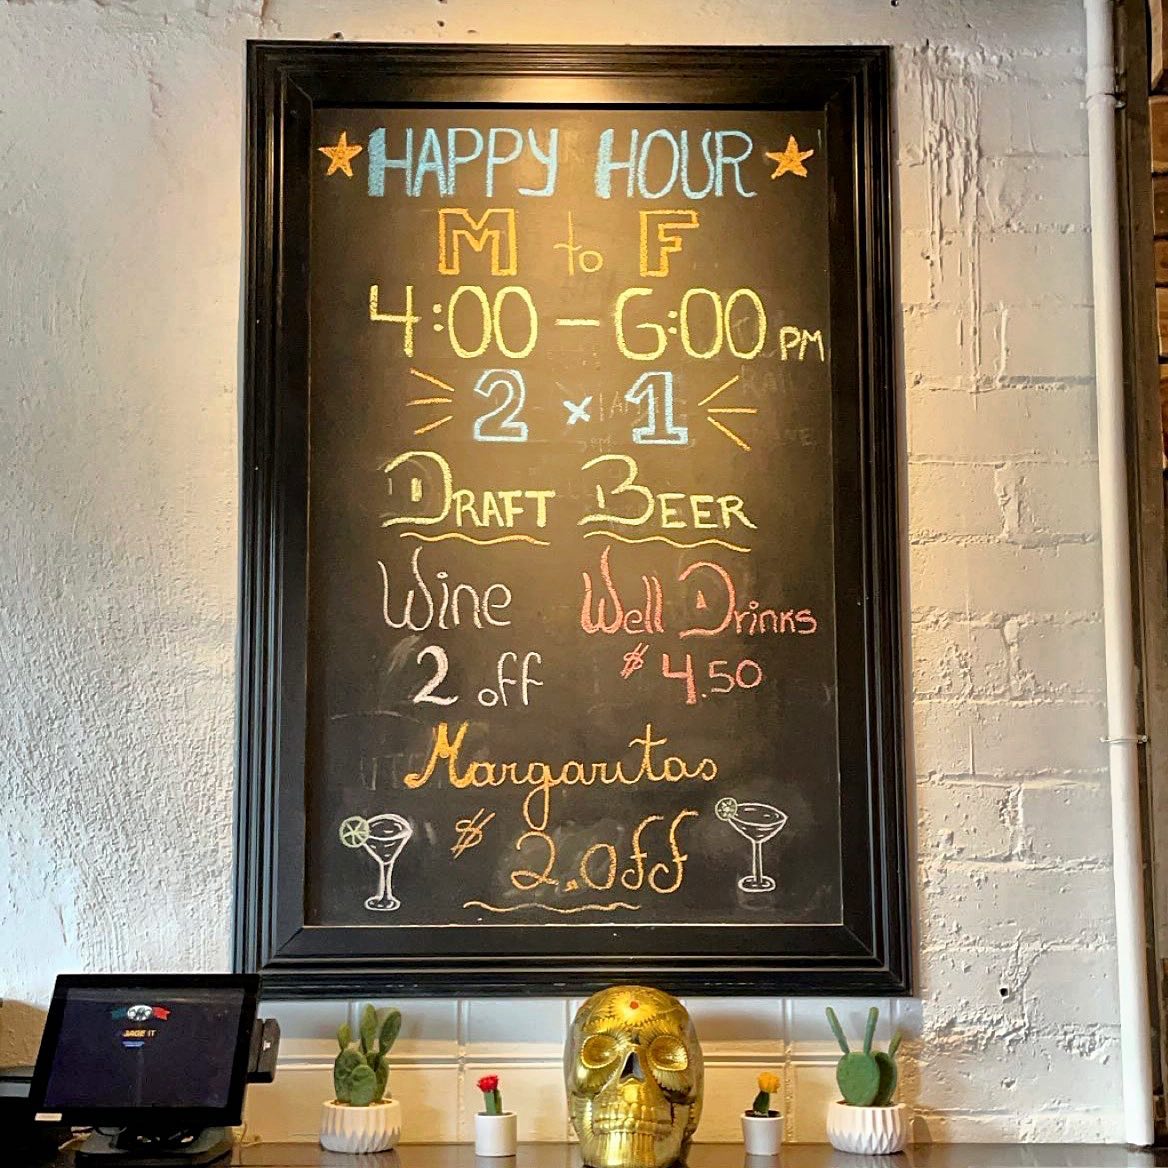 HAPPY HOUR
M to F
4:00 - 6:00 PM
2 x 1
DRAFT BEER
Wine Well Drinks
2 off $4.50
Margaritas
$2.off